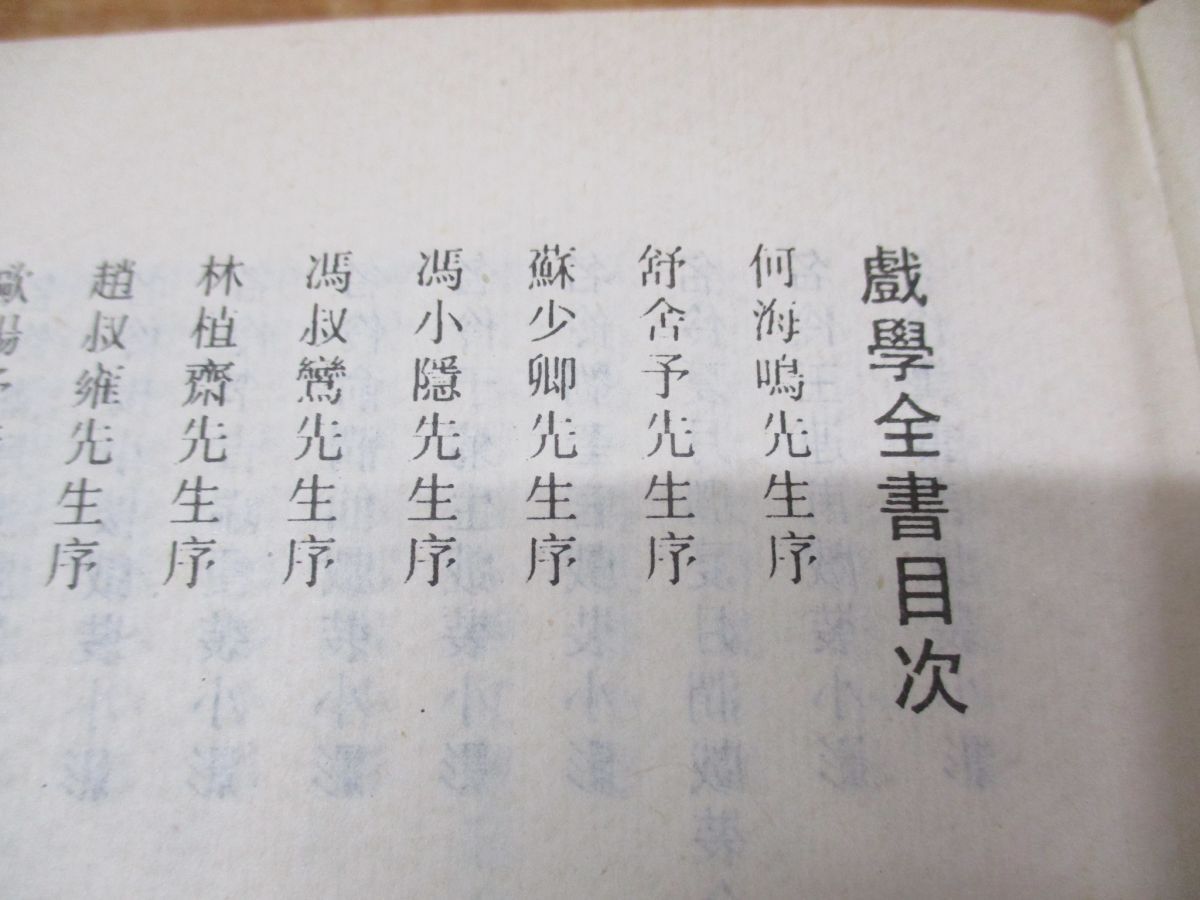 戲學全書目次
何海鳴先生序
舒舍予先生序
蘇少卿先生序
馮小隱先生序
馮叔鸞先生序
林植齋先生序
趙叔雍先生序
歐陽予